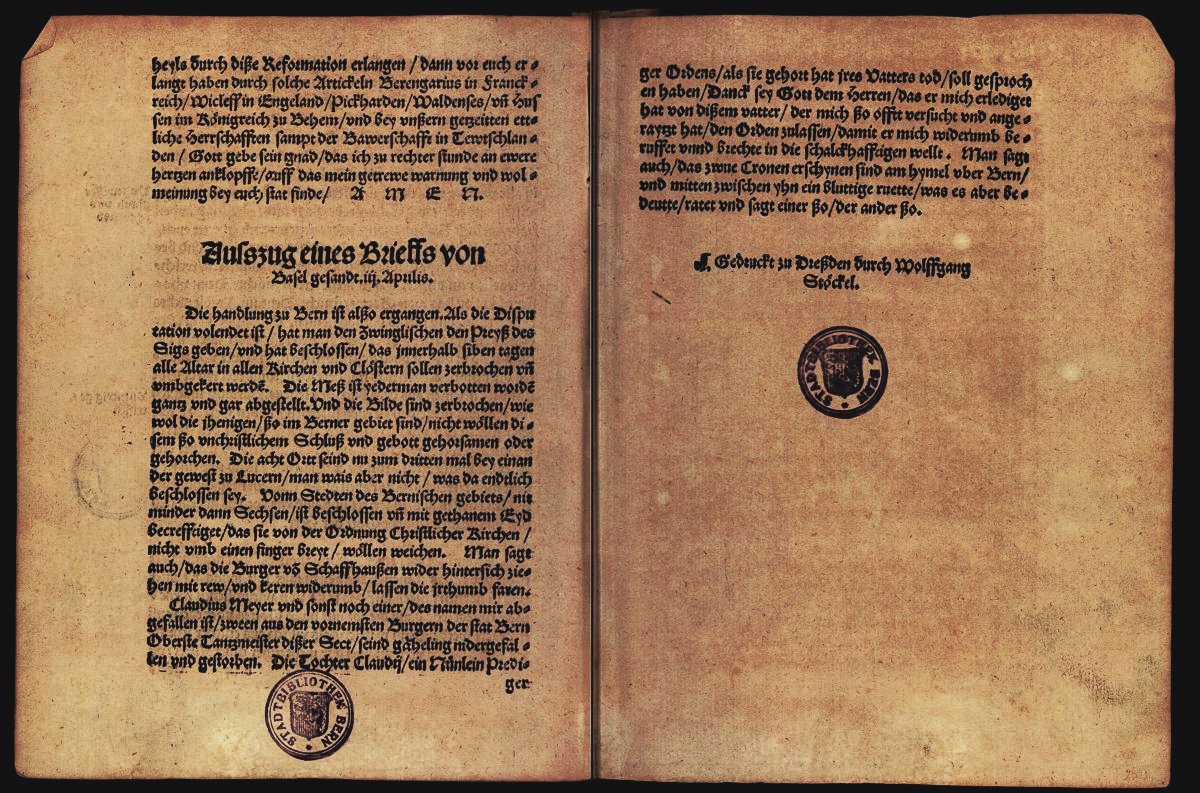 heyls durch diße Reformation erlangen / dann vor euch er⸗
langt haben durch solche Artickeln Berengarius in Franck⸗
reich/Wicleff in Engeland/Pickharden/Waldenses/vñ Hus
sen im Königreich zu Behem/vnd bey vnßern getzeitten ett⸗
liche Herrschafften sampt der Bawerschafft in Tewtschlan⸗
den / Gott gebe sein gnad/das ich zu rechter stunde an ewere
hertzen anklopffe/auff das mein getrewe warnung vnd wol⸗
meinung bey euch stat finde/ A M E N.
Auszzug eines Brieffs von
Basel gesandt.iij.Aprilis.
Die handlung zu Bern ist alßo ergangen.Als die Dispu
tation volendet ist / hat man den Zwinglischen den Preyß des
Sigs geben/vnd hat beschlossen/das jnnerhalb siben tagen
alle Altar in allen Kirchen vnd Clöstern sollen zerbrochen vñ
vmbgekert werdē. Die Meß ist yederman verbotten wordē
gantz vnd gar abgestellt.Vnd die Bilde sind zerbrochen/wie
wol die jhenigen/ßo im Berner gebiet sind/nicht wöllen di⸗
sem ßo vnchristlichem Schluß vnd gebott gehorsamen oder
gehorchen. Die acht Ortt seind nu zum dritten mal bey einan
der gewest zu Lucern/man wais aber nicht / was da endtlich
beschlossen sey. Vonn Stedten des Bernischen gebiets/nit
minder dann Sechsen/ist beschlossen vñ mit gethanem Eyd
becrefftiget/das sie von der Ordnung Christlicher Kirchen /
nicht vmb einen finger breyt / wöllen weichen. Man sagt
auch/das die Burger vō Schaffhaußen wider hintersich zie⸗
hen mit rew/vnd keren widerumb/lassen die jrthumb faren.
Claudius Meyer vnd sonst noch einer/des namen mir ab⸗
gefallen ist/zween aus den vornemsten Burgern der stat Bern
Oberste Tantzmeister dißer Sect/seind gäheling nidergefal⸗
len vnd gestorben. Die Tochter Claudij/ein Nünlein Predi⸗
ger
STADTBIBLIOTHEK BERN
ger Ordens/als sie gehort hat jres Vatters tod/soll gesproch
en haben/Danck sey Gott dem Herren/das er mich erlediget
hat von dißem vatter/ der mich ßo offt versucht vnd ange⸗
raytzt hat/den Orden zulassen/damit er mich widerumb be⸗
ruffet vnnd brechte in die schalckhafftigen wellt. Man sagt
auch/das zwue Cronen erschynen sind am hymel vber Bern/
vnd mitten zwischen yhn ein bluttige ruette/was es aber be⸗
deutte/ratet vnd sagt einer ßo/der ander ßo.
Gedruckt zu Dreßden durch Wolffgang
Stöckel.
STADTBIBLIOTHEK BERN